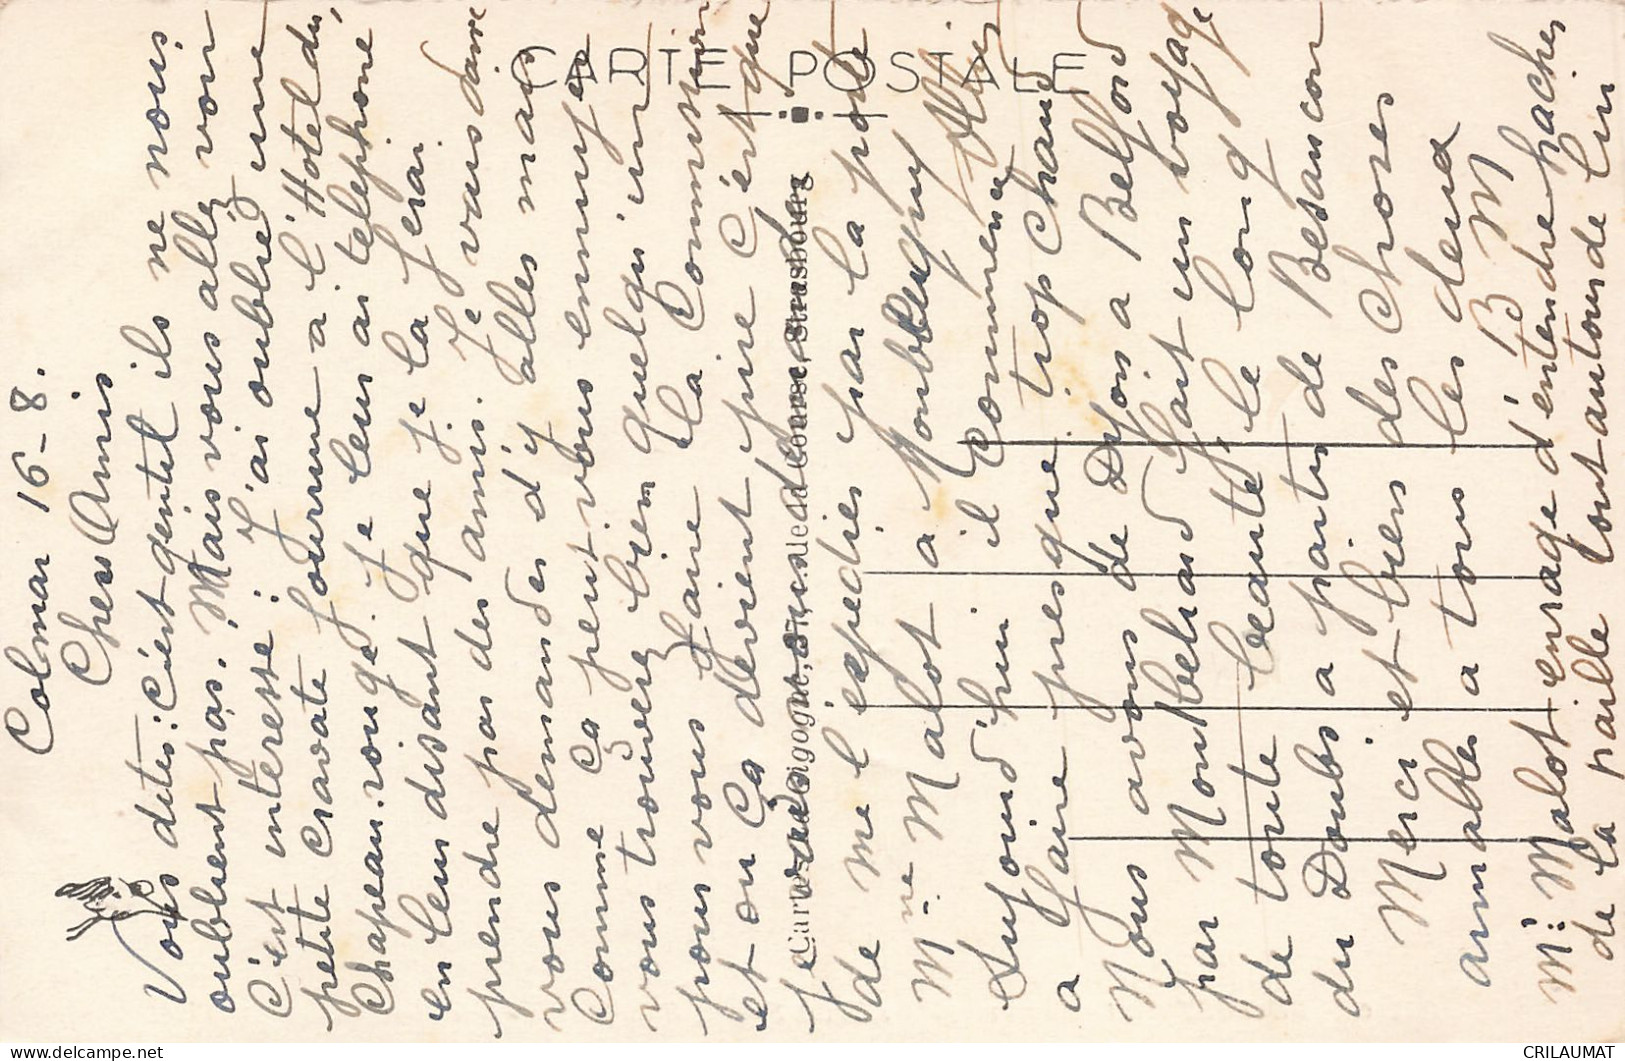 CARTE POSTALE
Colmar 16-8.
Chers Amis
Vous dites: C'est gentil ils ne nous
oublient pas. Mais vous allez voir
C'est interessé: J'ai oublié une
petite cravate fourrure à l'Hotel du
Chapeau rouge. Je leur ai telephoné
en leur disant que je la ferai
prendre par des amis. Je vais donc
vous demander d'y aller mais
Comme ça peut vous ennuyer
vous trouverez bien quelqu'un
pour vous faire la Commission
et ou ça devient pire C'est que
je vous
de me l'expedier par la poste
Mme Malot a Montbeugny Allier
Aujourd'hui il Commence
a faire presque trop chaud
Nous avons de Dijon a Belfort
par Montbeliard fait un voyage
de toute beauté, le long
du Doubs a partir de Besancon
Merci et bien des choses
aimables a tous les deux
B M
Mr Malot enrage d'entendre hacher
de la paille tout autour de lui
CRILAUMAT